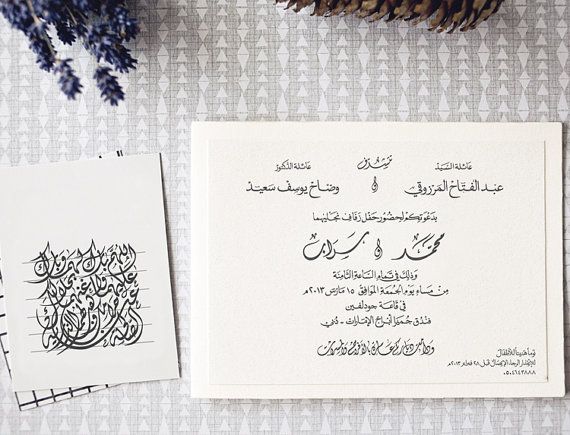 تتشرف
عائلة السيد
عبد الفتاح المرزوقي
و
عائلة الدكتور
وضاح يوسف سعيد
بدعوتكم لحضور حفل زفاف نجليهما
محمد و سراب
وذلك في تمام الساعة الثامنة
من مساء يوم الجمعة الموافق ١٥ مارس ٢٠١٣م
في قاعة جودلفين
فندق جميرا أبراج الإمارات - دبي
ودامت دياركم عامرة بالأفراح والمسرات
نوماً هنيئاً للأطفال
للإعتذار الرجاء الإتصال قبل ٢٨ فبراير ٢٠١٣م